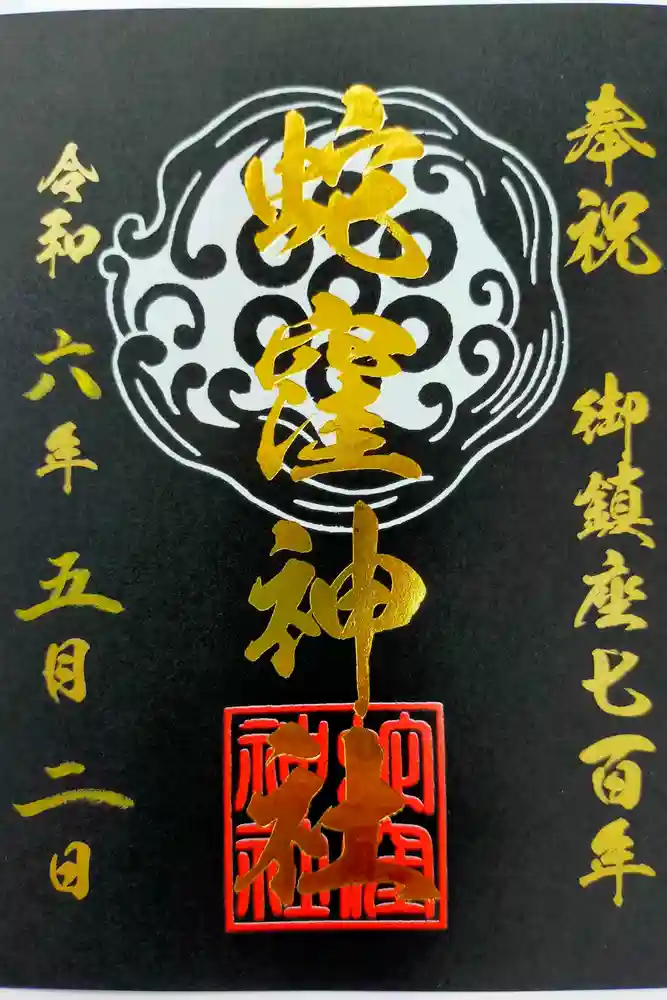 奉祝 御鎮座七百年
蛇窪神社
蛇窪神社
令和 六年 五月 二日